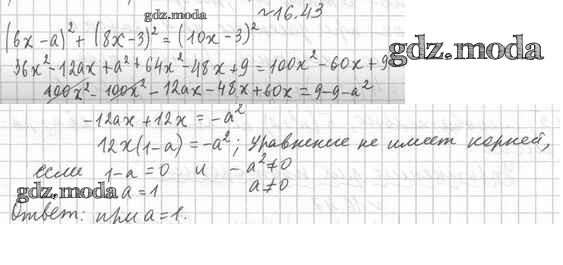 gdz.moda
№16.43
(6x-a)² + (8x-3)² = (10x-3)²
gdz.moda
36x²-12ax+a²+64x²-48x+9=100x²-60x+9
100x²-100x²-12ax-48x+60x=9-9-a²
-12ax+12x=-a²
12x(1-a)=-a²; уравнение не имеет корней,
если 1-a=0 и -a²≠0
gdz.moda a=1 a≠0
Ответ: при a=1.